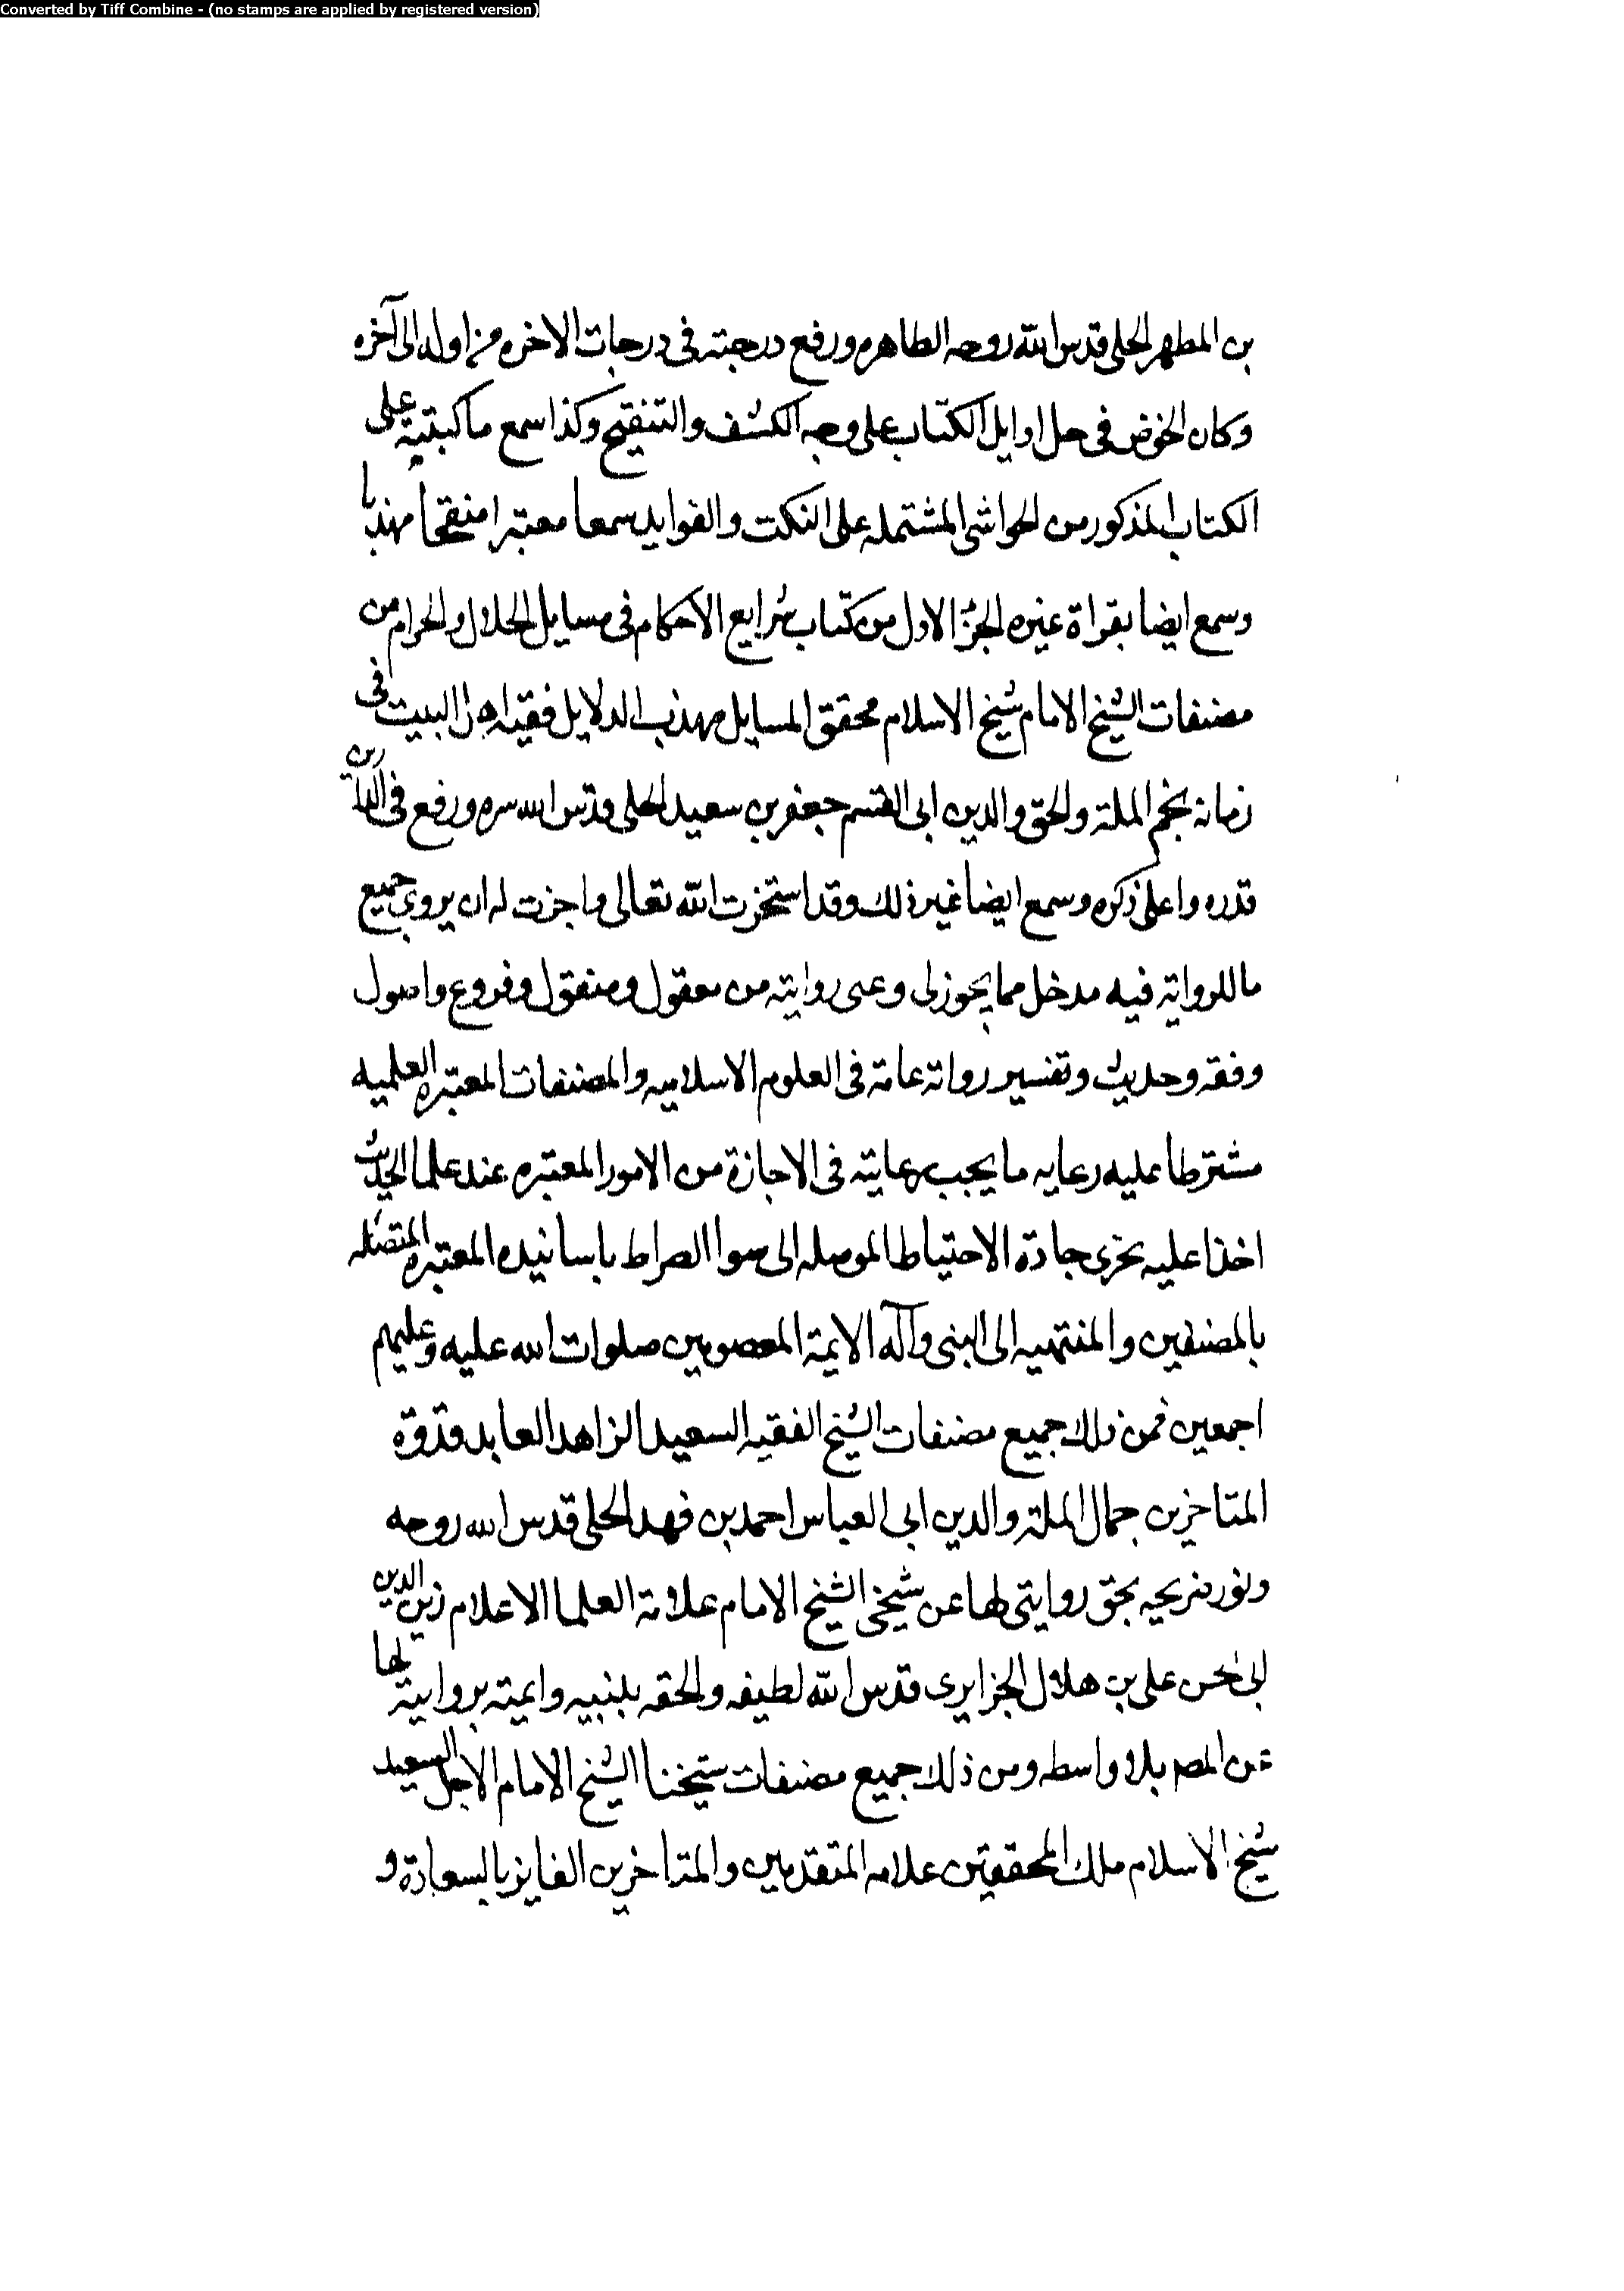 Converted by Tiff Combine - (no stamps are applied by registered version)
بن المطهر الحلى قدس الله روحه الطاهره ورفع درجته فى درجات الاخره من اوله الى آخره
وكان الخوض فى حل اوايل الكتاب على وجه الكشف والتنقيح وكذا سمع ما كتبته على
الكتاب المذكور من الحواشى المشتمله على النكت والفوايد سمعا معتبرا منقحا مهذبا
وسمع ايضا بقراة غيره الجزء الاول من كتاب شرايع الاحكام فى مسايل الحلال والحرام من
مصنفات الشيخ الامام شيخ الاسلام محقق المسايل مهذب الدلايل فقيه اهل البيت فى
زمانه نجم الملة والحق والدين ابى القسم جعفر بن سعيد الحلى قدس الله سره ورفع فى الدارين
قدره واعلى ذكره وسمع ايضا غير ذلك وقد استخرت الله تعالى واجزت له ان يروى جميع
ما للرواية فيه مدخل مما يجوز لى وعنى روايته من معقول ومنقول وفروع واصول
وفقه وحديث وتفسير رواية عامة فى العلوم الاسلاميه والمصنفات المعتبره العلميه
مشترطا عليه رعايه ما يجب رعايته فى الاجازة من الامور المعتبره عند علما الحديث
اخذا عليه تحرى جادة الاحتياط الموصله الى سوا الصراط باسانيده المعتبره المتصله
بالمصنفين والمنتهيه الى النبى وآله الايمة المعصومين صلوات الله عليه وعليهم
اجمعين فمن ذلك جميع مصنفات الشيخ الفقيه السعيد الزاهد العابد قدوة
المتاخرين جمال الملة والدين ابى العباس احمد بن فهد الحلى قدس الله روحه
ونور ضريحه بحق روايتى لها عن شيخى الشيخ الامام علامة العلما الاعلام زين الدين
ابى الحسن على بن هلال الجزايرى قدس الله لطيفه والحقه بنبيه وايمته بروايته لها
عن المصـ بلا واسطه ومن ذلك جميع مصنفات شيخنا الشيخ الامام الاجل السعيد
شيخ الاسلام ملك المحققين علامه المتقدمين والمتاخرين الفايز بالسعادة و